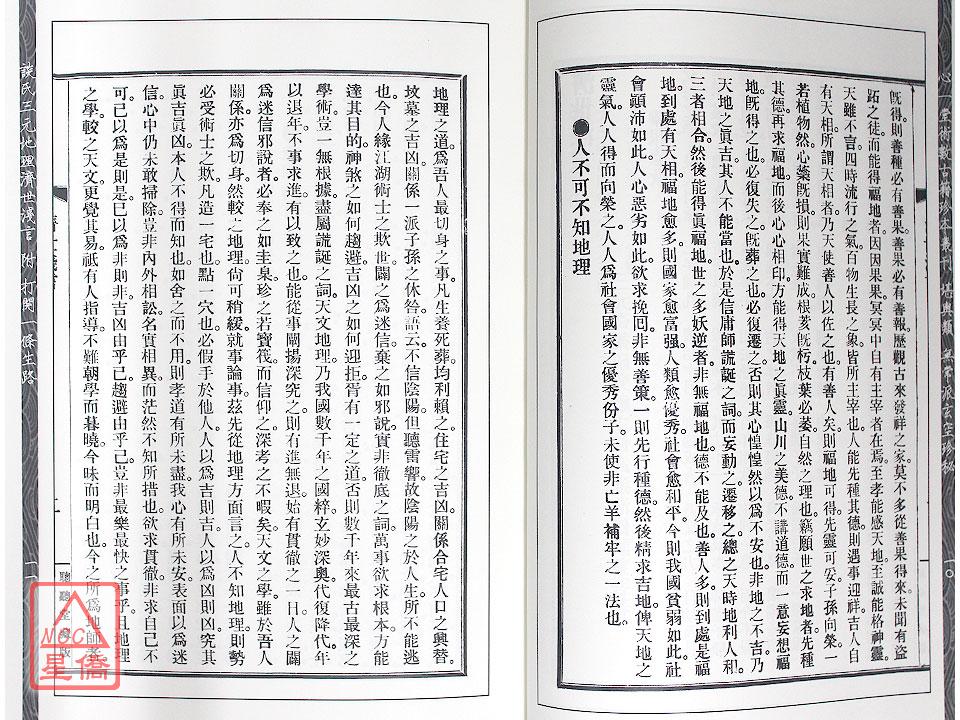 既得則善種必有善果善果必有善報歷觀古來發祥之家莫不多從善果得來未聞有盜
跖之徒而能得福地者因因果果冥冥中自有主宰者在焉至孝能感天地至誠能格神靈
天雖不言四時流行之氣百物生長之象皆所主宰也人能先種其德則遇事迎祥吉人自
有天相所謂天相者乃天使善人以佐之也有善人矣則福地可得先靈可妥子孫向榮一
若植物然心藥既損則果實難成根荄既朽枝葉必萎自然之理也竊願世之求地者先種
其德再求福地而後心心相印方能得天地之眞靈山川之美德不講道德而一意妄想福
地既得之也必復失之既葬之也必復遷之否則其心惶惶然以為不安也非地之不吉乃
天地之眞吉其人不能當也於是信庸師謊誕之詞而妄動之遷移之總之天時地利人和
三者相合然後能得眞福地世之多妖逆者非無福地也德不能及也善人多則到處是福
地到處有天相福地愈多則國家愈富强人類愈優秀社會愈和平今則我國貧弱如此社
會顚沛如此人心惡劣如此欲求挽囘非無善策一則先行種德然後精求吉地俾天地之
靈氣人人得而向榮之人人爲社會國家之優秀份子未使非亡羊補牢之一法也
●人不可不知地理
地理之道爲吾人最切身之事凡生養死葬均利賴之住宅之吉凶關係合宅人口之興替
坟墓之吉凶關係一派子孫之休咎語云不信陰陽但聽雷響故陰陽之於人生所不能逃
也今人緣江湖術士之欺世闢之爲迷信棄之如邪說實非徹底之詞萬事欲求根本方能
達其目的神煞之如何趨避吉凶之如何迎拒胥有一定之道否則數千年來最古最深之
學術豈一無根據盡屬謊誕之詞天文地理乃我國數千年之國粹玄妙深奧代復降代年
以退年不事求進有以致之也能從事闡揚深究之則有進無退始有貫徹之一日人之闢
爲迷信邪說者必奉之如圭泉珍之若寶筏而信仰之深考之不暇矣天文之學雖於吾人
關係亦爲切身然較之地理尙可稍緩就事論事茲先從地理方面言之人不知地理則勢
必受術士之欺凡造一宅也點一穴也必假手於他人人以爲吉則吉人以爲凶則凶究其
眞吉眞凶本人不得而知也如舍之而不用則孝道有所未盡我心有所未安表面以爲迷
信心中仍未敢掃除豈非內外相訟名實相異而茫然不知所措也欲求貫徹非求自己不
可己以爲是則是己以爲非則非吉凶由乎己趨避由乎己豈非最樂最快之事乎且地理
之學較之天文更覺其易祇有人指導不難朝學而暮曉今昧而明白也今之所爲地師者
談氏三元地理濟世淺言 附 打開一條生路
聽
星僑
NCC